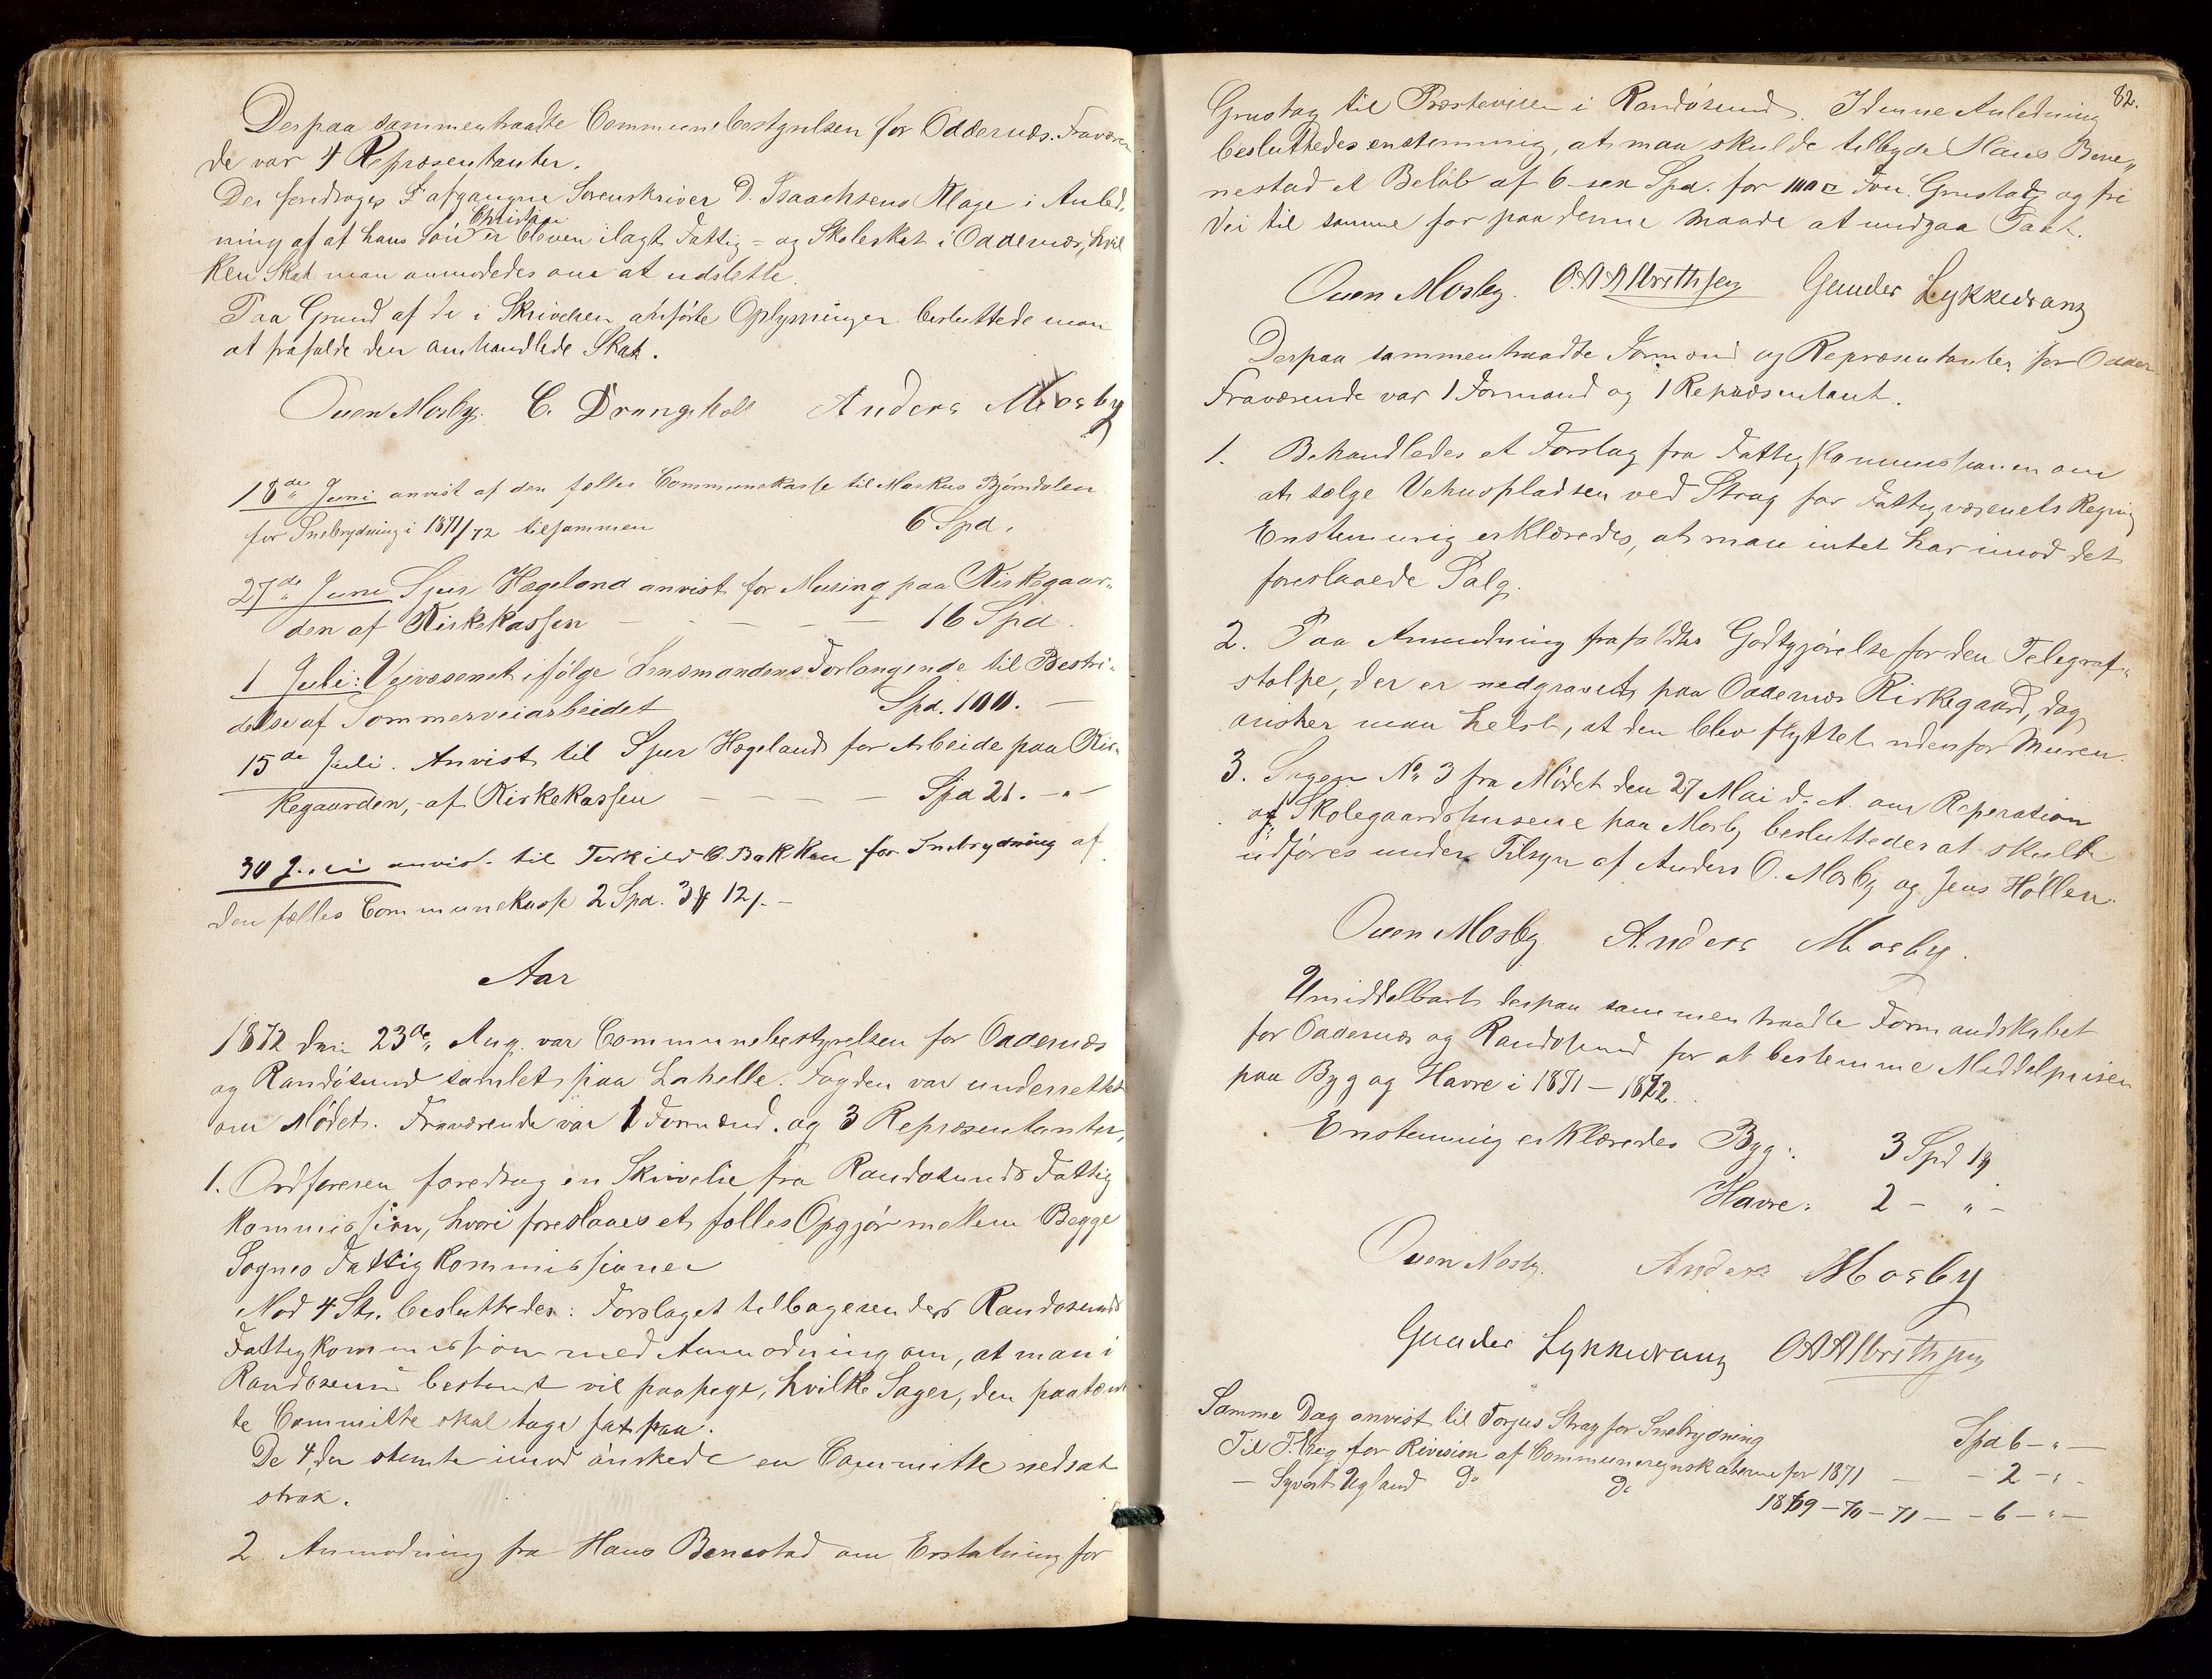 Derpaa sammentraadte Communebestyrelsen for Oddernæs. Fraværen
de var 4 Repræsentanter.
Der foredroges afgangne Sorenskriver D. Isaachsens Klage i Anled,
ning af at hans Søn Christian er bleven ilagt Fattig- og Skoleskat i Oddernæs, hvil
ken Skat man anmodedes om at udslette.
Paa Grund af de i Skrivelsen anførte Oplysninger besluttede man
at frafalde den omhandlede Skat.
Ouen Mosby. C. Drangsholt Anders Mosby
18de Juni anvist af den fælles Communekasse til Markus Bjørndalen
for Snebrydning i 1871/72 tilsammen 6 Spd.
27de Juni Sjur Hægeland anvist for Muring paa Kirkegaar-
den af Kirkekassen — — — — 16 Spd.
1 Juli: Veivæsenet ifølge Lensmandens Forlangende til Bestri-
delse af Sommerveiarbeidet Spd. 100. —
15de Juli. Anvist til Sjur Hægeland for Arbeide paa Kir-
kegaarden, af Kirkekassen — — — — Spd 21. - " -
30 Juli anvist til Terkild C. Bakken for Snebrydning af
den fælles Communekasse 2 Spd. 3 12 -
Aar
1872 den 23de Aug. var Communebestyrelsen for Oddernæs
og Randøsund samlet paa Lahelle. Fogden var underrettet
om Mødet. Fraværende var 1 Formænd. og 3 Repræsentanter,
1. Ordføreren foredrog en Skrivelse fra Randøsunds Fattig
kommission, hvori foreslaaes et fælles Opgjør mellem Begge
Sognes Fattigkommissioner
Mod 4 St. besluttedes: Forslaget tilbagesendes Randøsunds
Fattigkommission med Anmodning om, at man i
Randøsund bestemt vil paapege, hvilke Sager, den paatænk
te Committe skal tage fat paa.
De 4, der stemte imod ønskede en Committe nedsat
strax.
2. Anmodning fra Hans Benestad om Erstatning for
82.
Grustag til Prestevien i Randøsund. I denne Anledning
besluttedes enstemmig, at man skulde tilbyde Hans Bene„
nestad et Beløb af 6 - sex Spd. for 1000 □ Fou. Grustag og fri
Vei til samme for paa denne Maade at undgaa Taxt.
Ouen Mosby. O.A. Albrethsen Gunder Lykkedrang
Derpaa sammentraadte Formænd og Repræsentanter for Odder
Fraværende var 1 Formand og 1 Repræsentant.
1. Behandledes et Forslag fra Fattigkommissionen om
at sælge Vehuspladsen ved Strag for Fattigvæsenets Regning
Enstemmig erklæredes, at man intet har imod det
foreslaaede Salg.
2. Paa Anmodning frafaldtes Godtgjørelse for den Telegraf-
stolpe, der er nedgravet paa Oddernæs Kirkegaard, dog
ønsker man helst, at den blev flyttet udenfor Muren.
3. Sagen No 3 fra Mødet den 27 Mai d. A. om Reperation
af Skolegaardshusene paa Mosby besluttedes at skulle
udføres under Tilsyn af Anders O. Mosby og Jens Høllen.
Ouen Mosby. Anders Mosby.
Umiddelbart derpaa sammentraadte Formandskabet
for Oddernæs og Randøsund for at bestemme Middelprisen
paa Byg og Havre i 1871 - 1872.
Enstemmig erklæredes Byg: 3 Spd
Havre: 2 - " -
Ouen Mosby. Anders Mosby
Gunder Lykkedrang O.A. Albrethsen
Samme Dag anvist til Torjus Strag for Snebrydning Spd 6 - " -
Til for Revision af Communeregnskaberne for 1871 — - 2 - " -
— Syvert Ugland Do Do 1869 - 70 - 71 — - 6 - " -